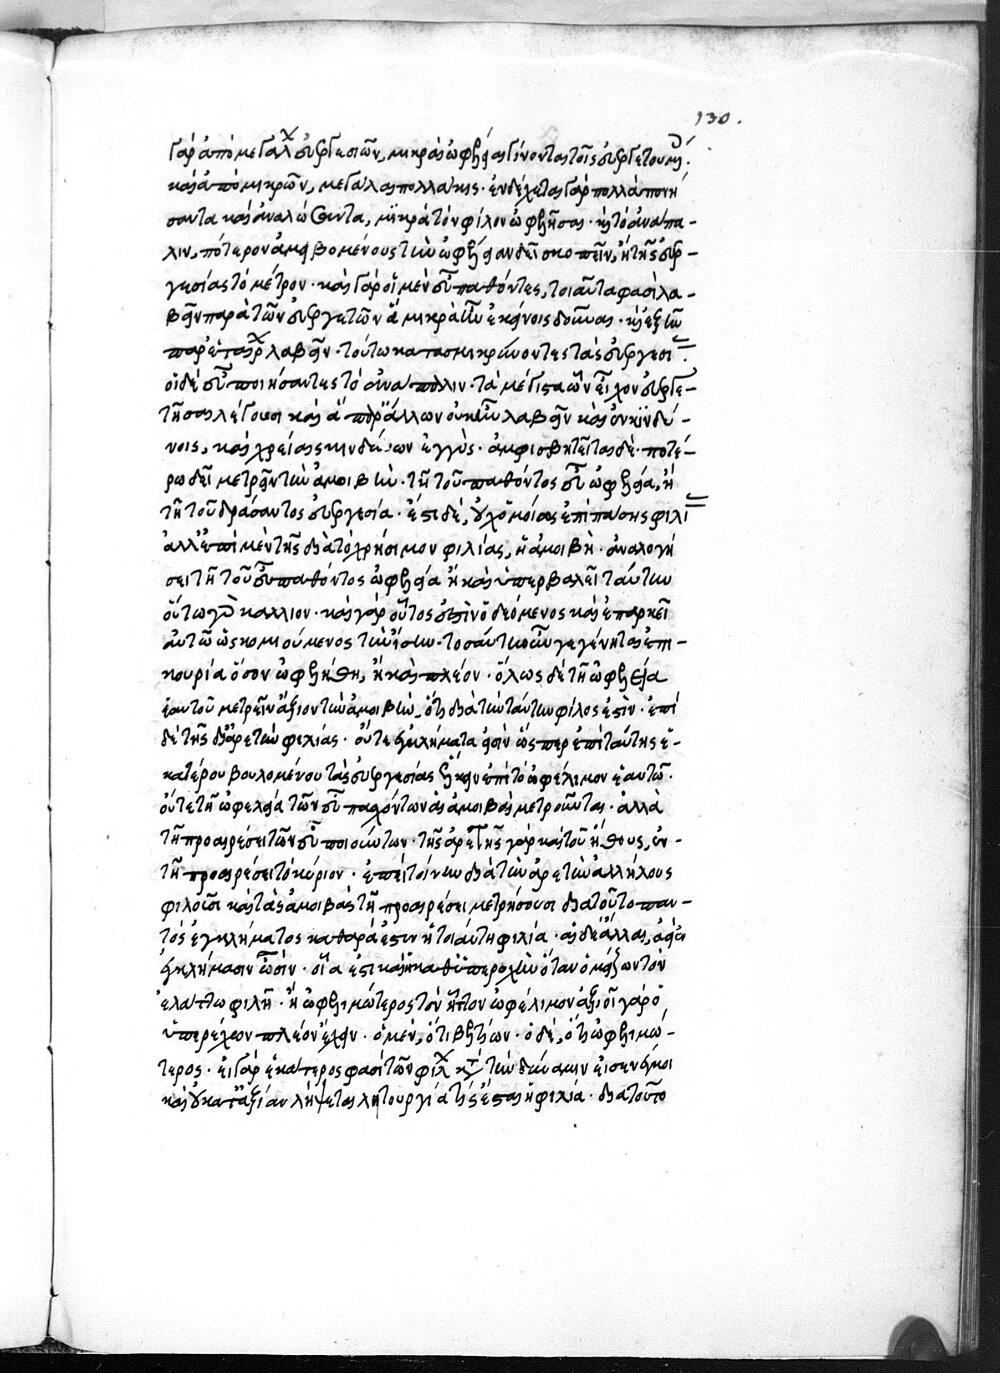 130.
γὰρ ἀπὸ μεγάλων εὐεργεσιῶν, μικραὶ ὠφέλειαι γίνονται τοῖς εὐεργετουμένοις.
καὶ ἀπὸ μικρῶν, μεγάλαι πολλάκις· ἐνδέχεται γὰρ πολλὰ πονή
σαντα καὶ ἀναλώσαντα, μικρὰ τὸν φίλον ὠφελῆσαι· καὶ τὸ ἀνάπα-
λιν, πότερον ἀμειβομένους τὴν ὠφέλειαν δεῖ σκοπεῖν, ἢ τῆς εὐερ-
γεσίας τὸ μέτρον· καὶ γὰρ οἱ μὲν εὖ παθόντες, τοιαῦτα φασὶ λα-
βεῖν παρὰ τῶν εὐεργετῶν ἃ μικρὰ ἦν ἐκείνοις δοῦναι· καὶ ἐξῆν
παρ' ἑτέρων λαβεῖν· τούτω κατασμικρύνοντες τὰς εὐεργεσίας.
οἱ δὲ εὖ ποιήσαντες τὸ ἀνάπαλιν· τὰ μέγιστα ὧν εἶχον εὐεργε-
τῆσαι λέγουσι καὶ ἃ παρ' ἄλλων οὐκ ἦν λαβεῖν καὶ ἐν κινδύ-
νοις, καὶ χρείαις κινδύνων ἐγγύς· ἀμφισβητεῖται δὲ· ποτέ-
ρω δεῖ μετρεῖν τὴν ἀμοιβὴν· τῆ τοῦ παθόντος εὖ ὠφελεία, ἢ
τῆ τοῦ δράσαντος εὐεργεσία· ἔστι δὲ, οὐχ ὁμοίως ἐπὶ πάσης φιλίας
ἀλλ' ἐπὶ μὲν τῆς διὰ τὸ χρήσιμον φιλίας, ἡ ἀμοιβὴ· ἀναλογή
σει τῆ τοῦ εὖ παθόντος ὠφελεία ἢ καὶ ὑπερβαλεῖ ταύτην
οὕτω γὰρ κάλλιον· καὶ γὰρ οὗτος ἐστὶν ὁ δεόμενος καὶ ἐπαρκεῖ
αὐτῶ ὡς κομιούμενος τὴν ἴσην· τοσαύτη οὖν γεγένηται ἐπι-
κουρία ὅσον ὠφελήθη, ἢ καὶ πλέον· ὅλως δὲ τῆ ὠφελεία
ἑαυτοῦ μετρεῖν ἄξιον τὴν ἀμοιβὴν, ὅτι διὰ τὴν ταύτην φίλος ἐστὶν· ἐπὶ
δὲ τῆς δι' ἀρετὴν φιλίας· οὔτε ἐγκλήματα εἰσὶν ὥσπερ ἐπὶ ταύτης ἑ-
κατέρου βουλομένου τὰς εὐεργεσίας ἕλκειν ἐπὶ τὸ ὠφέλιμον ἑαυτῶ.
οὔτε τῆ ὠφελεία τῶν εὖ παθόντων αἱ ἀμοιβαὶ μετροῦνται· ἀλλὰ
τῆ προαιρέσει τῶν εὖ ποιούντων· τῆς ἀρετῆς γὰρ καὶ τοῦ ἤθους, ἐν-
τῆ προαιρέσει τὸ κύριον· ἐπεὶ τοίνυν διὰ τὴν ἀρετὴν ἀλλήλους
φιλοῦσι καὶ τὰς ἀμοιβὰς τῆ προαιρέσει μετρήσουσι διὰ τοῦτο παν-
τὸς ἐγκλήματος καθαρά ἐστιν ἡ τοιαύτη φιλία· αἱ δὲ ἄλλαι,
ἐγκλήμασιν· οἷα ἐστὶ καὶ ἡ καθ' ὑπεροχὴν ὅταν ὁ μείζων τὸν
ἐλάττω φιλῆ· ἢ ὠφελιμώτερος τὸν ἧττον ὠφέλιμον ἀξιοῖ γὰρ ὁ
ὑπερέχων πλέον ἔχειν· ὁ μὲν, ὅτι βελτίων· ὁ δὲ, ὅτι ὠφελιμώ-
τερος· εἰ γὰρ ἑκάτερος φασὶ τῶν φίλων κατὰ τὴν δύναμιν εἰσενέγκοι
καὶ οὐ κατ' ἀξίαν λήψεται λητουργία τίς ἔσται ἡ φιλία· διὰ τοῦτο